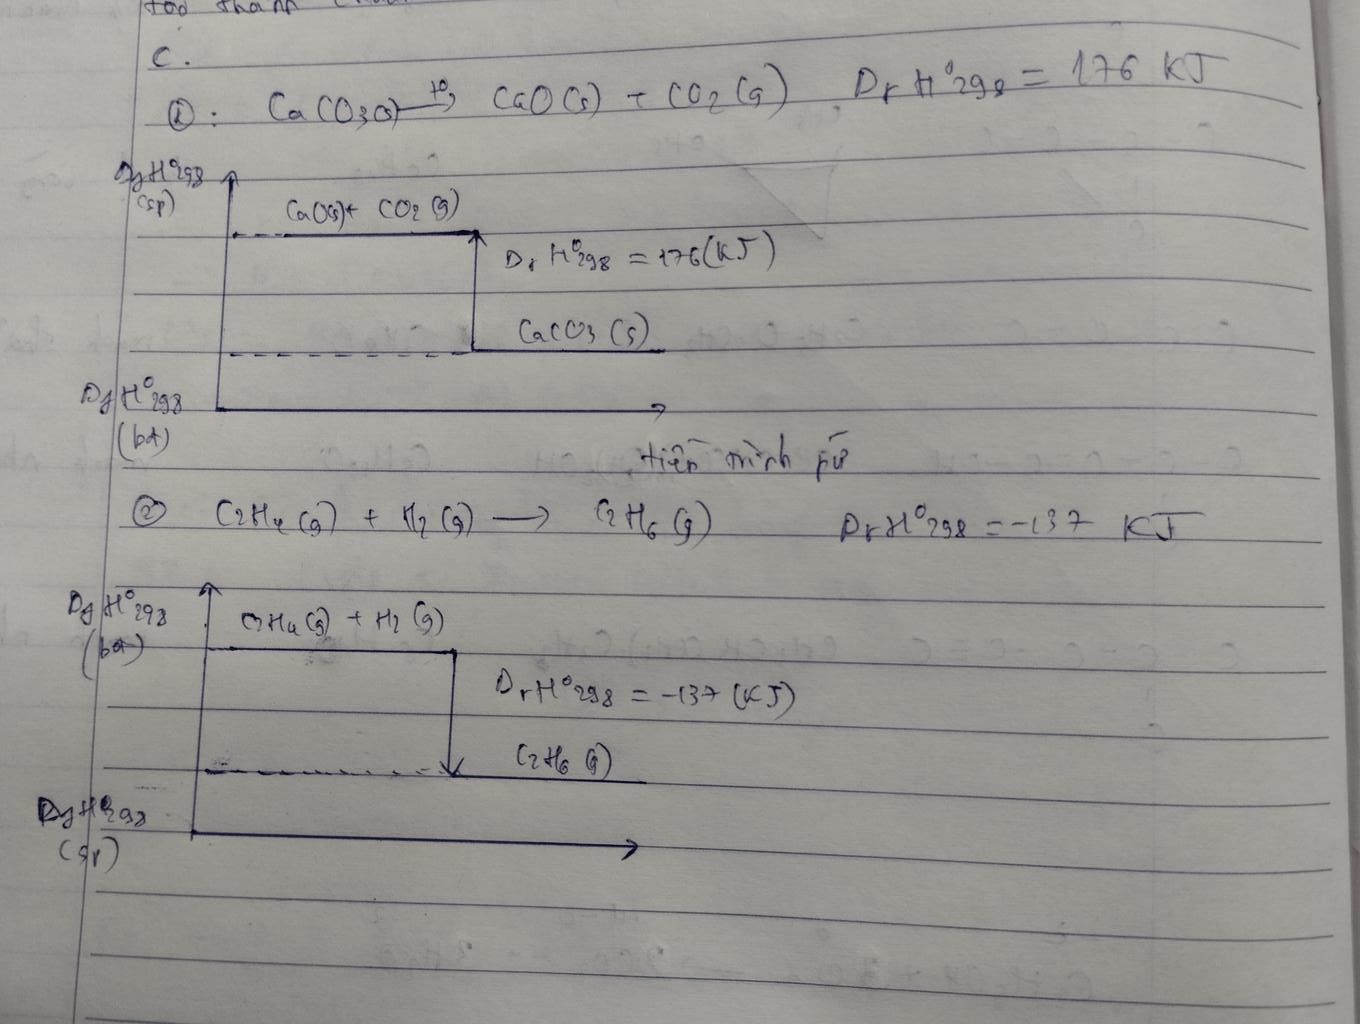 tạo thành
C.
①: CaCO3(s) →t° CaO(s) + CO2(g) DrH°298 = 176 KJ
DfH°298
(sp)
CaO(s) + CO2(g)
DrH°298 = 176(KJ)
CaCO3(s)
DfH°298
(bđ)
tiến trình pứ
② C2H4(g) + H2(g) → C2H6(g) DrH°298 = -137 KJ
DfH°298
(bđ)
C2H4(g) + H2(g)
DrH°298 = -137 (KJ)
C2H6(g)
DfH°298
(sp)